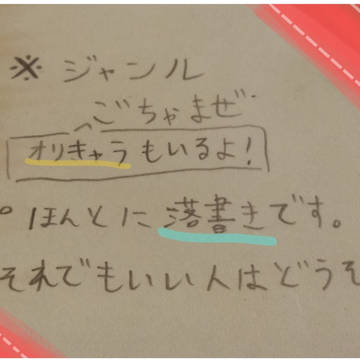 ※ ジャンル
ごちゃまぜ
オリキャラもいるよ!
。ほんとに落書きです。
それでもいい人はどうぞ